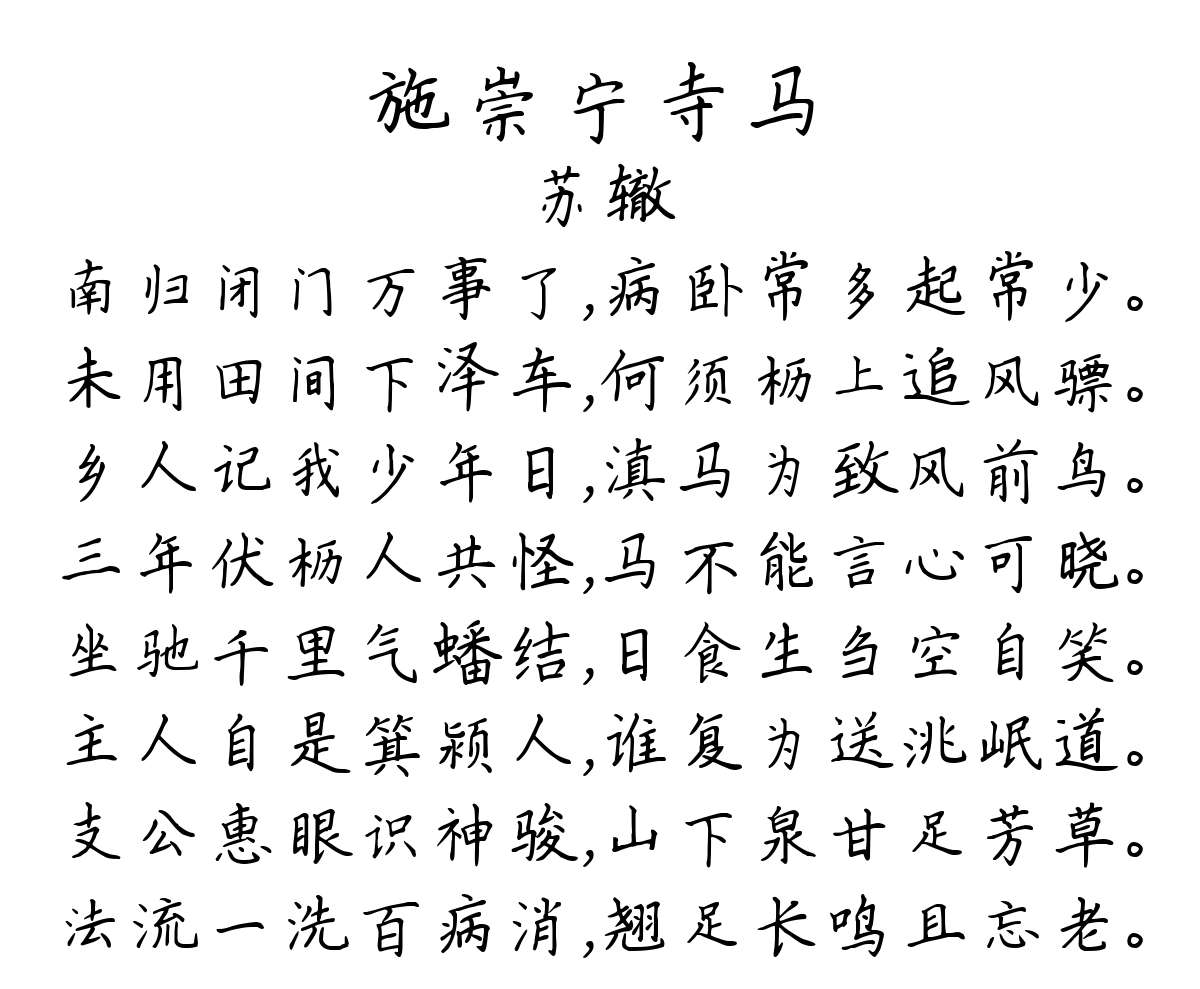 施崇宁寺马
苏辙
南归闭门万事了,病卧常多起常少。
未用田间下泽车,何须枥上追风骠。
乡人记我少年日,滇马为致风前鸟。
三年伏枥人共怪,马不能言心可晓。
坐驰千里气蟠结,日食生刍空自笑。
主人自是箕颍人,谁复为送洮岷道。
支公惠眼识神骏,山下泉甘足芳草。
法流一洗百病消,翘足长鸣且忘老。